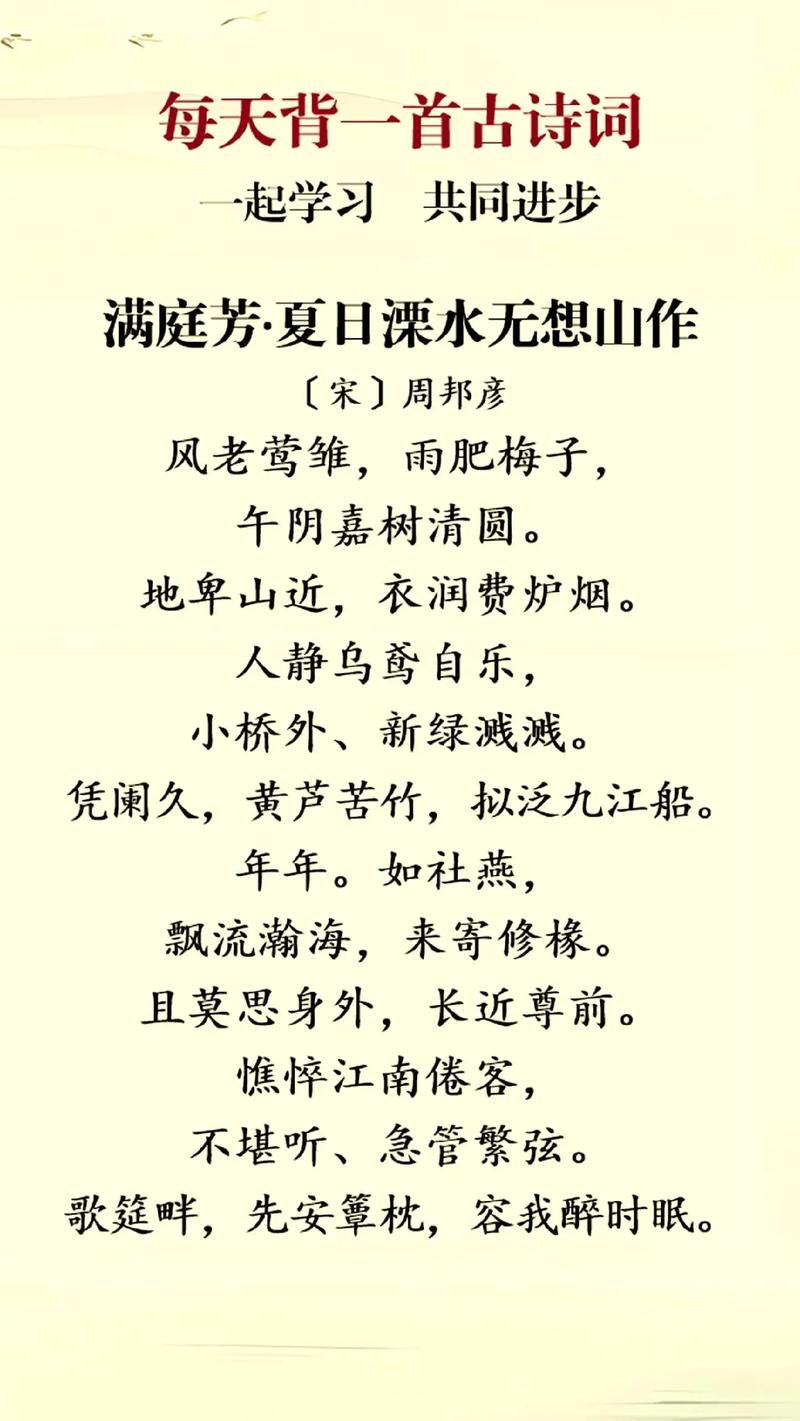 每天背一首古诗词
一起学习 共同进步
满庭芳·夏日溧水无想山作
〔宋〕周邦彦
风老莺雏，雨肥梅子，
午阴嘉树清圆。
地卑山近，衣润费炉烟。
人静乌鸢自乐，
小桥外、新绿溅溅。
凭阑久，黄芦苦竹，拟泛九江船。
年年。如社燕，
飘流瀚海，来寄修椽。
且莫思身外，长近尊前。
憔悴江南倦客，
不堪听、急管繁弦。
歌筵畔，先安簟枕，容我醉时眠。